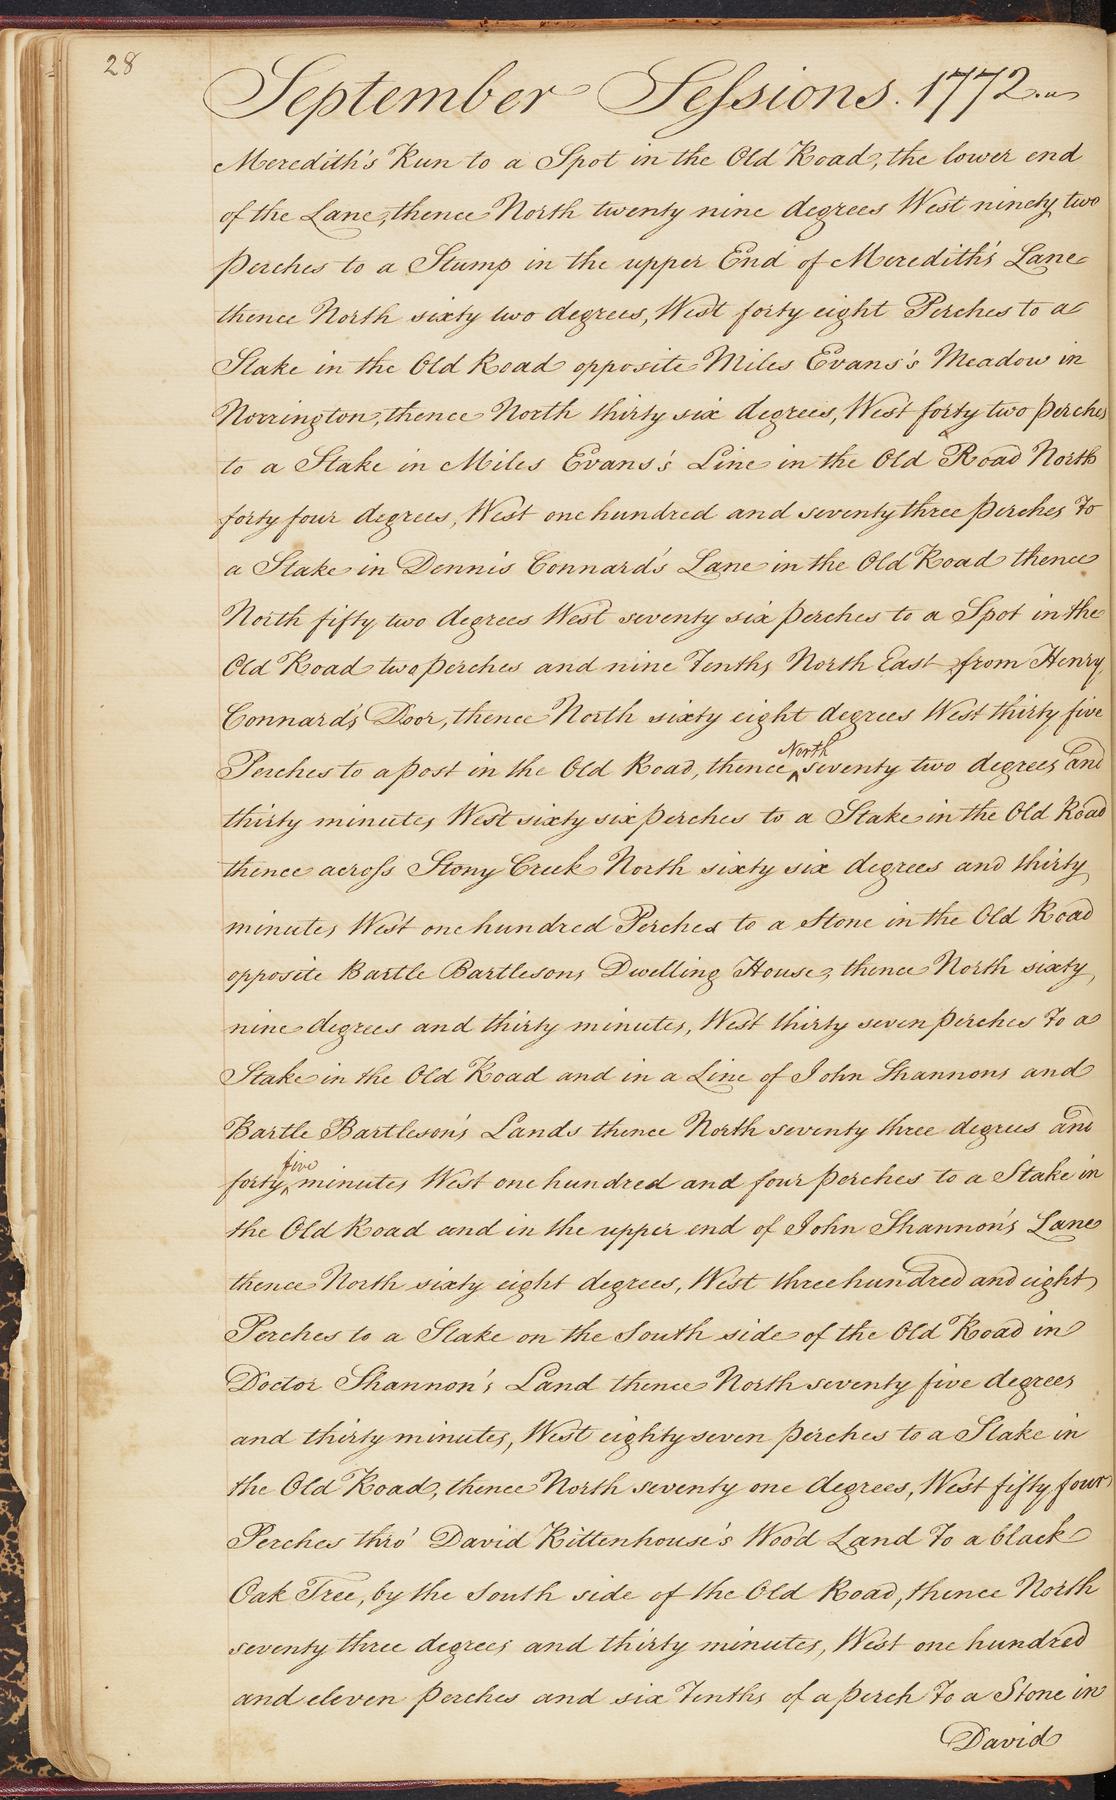 28
September Sessions. 1772.
Meredith's Run to a Spot in the Old Road, the lower end
of the Lane, thence North twenty nine degrees West ninety two
perches to a Stump in the upper End of Meredith's Lane
thence North sixty two degrees, West forty eight Perches to a
Stake in the Old Road opposite Miles Evans's Meadow in
Norrington, thence North thirty six degrees, West forty two perches
to a Stake in Miles Evans's Line in the Old Road North
forty four degrees, West one hundred and seventy three perches to
a Stake in Dennis Connard's Lane in the Old Road thence
North fifty two degrees West seventy six perches to a Spot in the
Old Road two perches and nine Tenths North East from Henry
Connard's Door, thence North sixty eight degrees West thirty five
Perches to a post in the Old Road, thence North seventy two degrees and
thirty minutes West sixty six perches to a Stake in the Old Road
thence across Stony Creek North sixty six degrees and thirty
minutes West one hundred Perches to a Stone in the Old Road
opposite Bartle Bartlesons Dwelling House, thence North sixty
nine degrees and thirty minutes, West thirty seven perches to a
Stake in the Old Road and in a Line of John Shannons and
Bartle Bartleson's Lands thence North seventy three degrees and
forty five minutes West one hundred and four perches to a Stake in
the Old Road and in the upper end of John Shannon's Lane
thence North sixty eight degrees, West three hundred and eight
Perches to a Stake on the South side of the Old Road in
Doctor Shannon's Land thence North seventy five degrees
and thirty minutes, West eighty seven perches to a Stake in
the Old Road, thence North seventy one degrees, West fifty four
Perches thro' David Rittenhouse's Wood Land to a black
Oak Tree, by the South side of the Old Road, thence North
seventy three degrees and thirty minutes, West one hundred
and eleven perches and six Tenths of a perch to a Stone in
David